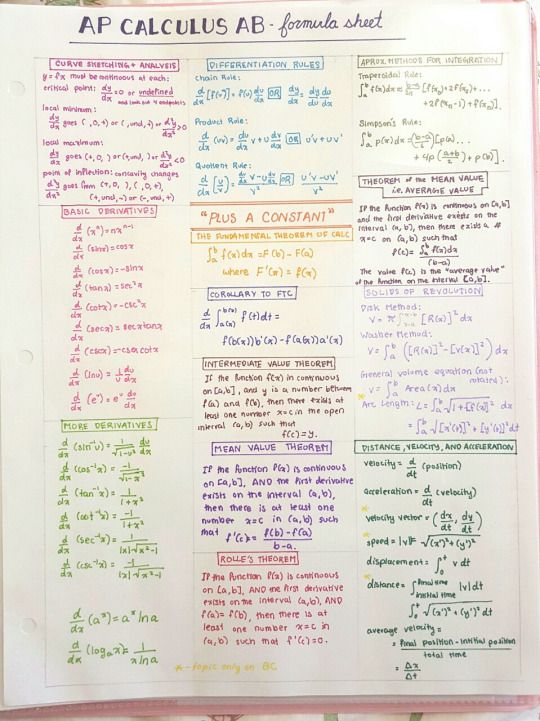 AP CALCULUS AB - formula sheet
CURVE SKETCHING + ANALYSIS
y = f(x) must be continuous at each:
critical point: dy/dx = 0 or undefined
and look out 4 endpoints
local minimum:
dy/dx goes (-,0,+) or (-,und,+) or d²y/dx² >0
local maximum:
dy/dx goes (+,0,-) or (+,und,-) or d²y/dx² <0
point of inflection: concavity changes
d²y/dx² goes from (+,0,-), (-,0,+),
(+,und,-) or (-,und,+)
BASIC DERIVATIVES
d/dx (xⁿ) = nxⁿ⁻¹
d/dx (sinx) = cosx
d/dx (cosx) = -sinx
d/dx (tanx) = sec²x
d/dx (cotx) = -csc²x
d/dx (secx) = secxtanx
d/dx (cscx) = -cscxcotx
d/dx (lnu) = 1/u du/dx
d/dx (eᵘ) = eᵘ du/dx
MORE DERIVATIVES
d/dx (sin⁻¹u) = 1/√1-u² du/dx
d/dx (cos⁻¹x) = -1/√1-x²
d/dx (tan⁻¹x) = 1/1+x²
d/dx (cot⁻¹x) = -1/1+x²
d/dx (sec⁻¹x) = 1/|x|√x²-1
d/dx (csc⁻¹x) = -1/|x|√x²-1
d/dx (aˣ) = aˣ lna
d/dx (logₐx) = 1/xlna
DIFFERENTIATION RULES
Chain Rule:
d/dx [f(u)] = f'(u) du/dx OR dy/dx = dy/du du/dx
Product Rule:
d/dx (uv) = du/dx v + u dv/dx OR u'v + uv'
Quotient Rule:
d/dx (u/v) = du/dx v - u dv/dx / v² OR u'v - uv' / v²
"PLUS A CONSTANT"
THE FUNDAMENTAL THEOREM OF CALC
∫ₐᵇ f(x)dx = F(b) - F(a)
where F'(x) = f(x)
COROLLARY TO FTC
d/dx ∫ f(t)dt =
f(b(x))b'(x) - f(a(x))a'(x)
INTERMEDIATE VALUE THEOREM
If the function f(x) in continuous
on [a,b], and y is a number between
f(a) and f(b), then there exists at
least one number x=c in the open
interval (a,b) such that
f(c)=y.
MEAN VALUE THEOREM
If the function f(x) is continuous
on [a,b], AND the first derivative
exist on the interval (a,b),
then there is at least one
number x=c in (a,b) such
that f'(c) = f(b)-f(a) / b-a.
ROLLE'S THEOREM
If the function f(x) is continuous
on [a,b], AND the first derivative
exists on the interval (a,b), AND
f(a)=f(b), then there is at
least one number x=c in
(a,b) such that f'(c)=0.
*-topic only on BC
APRUX. METHODS FOR INTEGRATION
Trapezoidal Rule:
∫ₐᵇ f(x)dx = b-a/2n [f(x₀)+2f(x₁)+...
+2f(xₙ-1)+f(xₙ)].
Simpson's Rule:
∫ₐᵇ f(x)dx = (b-a)/6 [f(a)...
+4f(a+b/2)+f(b)].
THEOREM of the MEAN VALUE
i.e. AVERAGE VALUE
If the function f(x) is continuous on [a,b],
and the first derivative exists on the
interval (a,b), then there exists a #
x=c on (a,b) such that
f(c) = ∫ₐᵇ f(x)dx / (b-a)
The value f(c) is the "average value"
of the function on the interval [a,b].
SOLIDS OF REVOLUTION
Disk Method:
V = π∫ [R(x)]² dx
Washer Method:
V = ∫ₐᵇ ([R(x)]² - [r(x)]²) dx
General volume equation (not
rotated):
V = ∫ₐᵇ Area(x) dx
*Arc Length: L = ∫ₐᵇ √1+[f'(x)]² dx
= ∫ₐᵇ √[x'(t)]² + [y'(t)]² dt
DISTANCE, VELOCITY, AND ACCELERATION
velocity = d/dt (position)
acceleration = d/dt (velocity)
*velocity vector = (dx/dt, dy/dt)
*speed = |v| = √(x')² + (y')²
displacement = ∫ v dt
*distance = ∫ final time initial time |v| dt
∫ √(x')² + (y')² dt
average velocity =
= final position - initial position / total time
= Δx/Δt